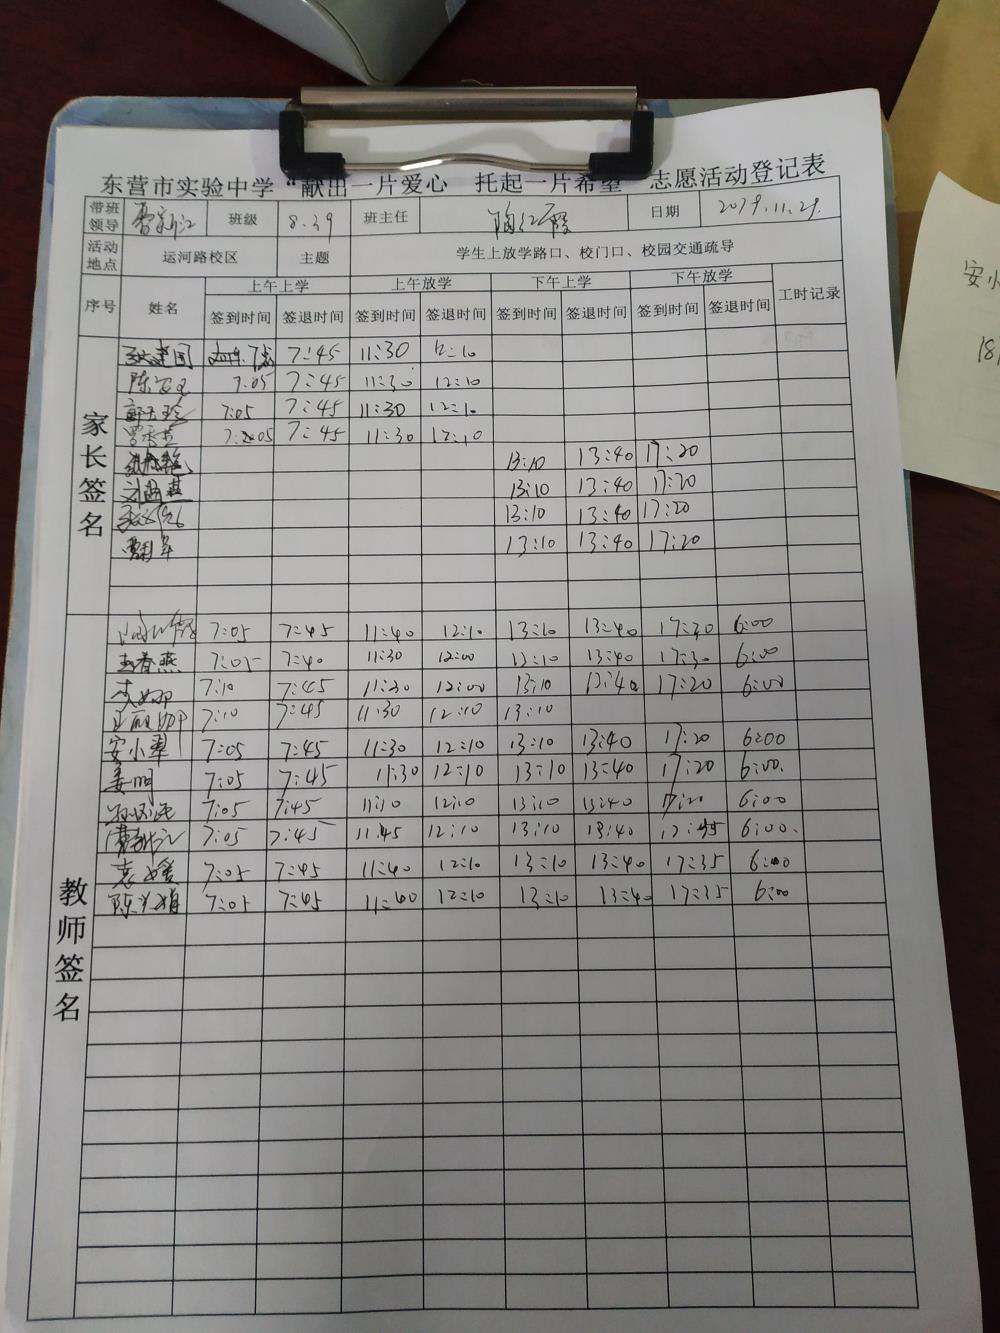 东营市实验中学“献出一片爱心 托起一片希望”志愿活动登记表
带班领导 曹新江 班级 8.39 班主任 陶红霞 日期 2019.11.29.
活动地点 运河路校区 主题 学生上放学路口、校门口、校园交通疏导
序号 姓名 上午上学 上午放学 下午上学 下午放学 工时记录
签到时间 签退时间 签到时间 签退时间 签到时间 签退时间 签到时间 签退时间
家长签名
建国 7:45 11:30 12:10
陈 7:05 7:45 11:30 12:10
7:05 7:45 11:30 12:10
7:05 7:45 11:30 12:10
13:10 13:40 17:20
刘 燕 13:10 13:40 17:20
13:10 13:40 17:20
曹 军 13:10 13:40 17:20
教师签名
陶红霞 7:05 7:45 11:40 12:10 13:10 13:40 17:30 6:00
春燕 7:05 7:40 11:30 12:00 13:10 13:40 17:30 6:00
李 7:10 7:45 11:30 12:00 13:10 13:40 17:20 6:00
7:10 7:45 11:30 12:10 13:10
安小翠 7:05 7:45 11:30 12:10 13:10 13:40 17:20 6:00
姜明 7:05 7:45 11:30 12:10 13:10 13:40 17:20 6:00.
7:05 7:45 11:10 12:10 13:10 13:40 17:20 6:00
曹新江 7:05 7:45 11:45 12:10 13:10 13:40 17:45 6:00.
袁媛 7:05 7:45 11:40 12:10 13:10 13:40 17:35 6:00
陈 娟 7:05 7:45 11:40 12:10 13:10 13:40 17:35 6:00
安小
18